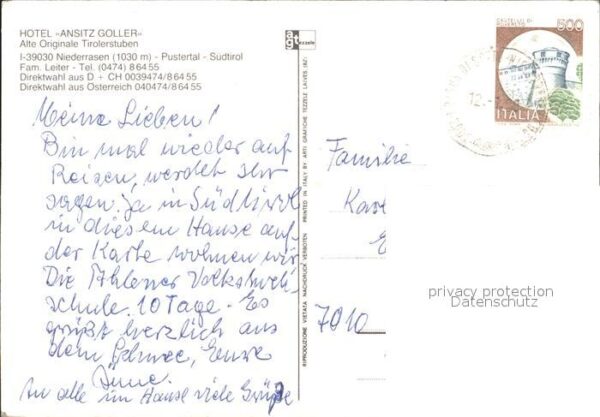 HOTEL »ANSITZ GOLLER«
Alte Originale Tirolerstuben
I-39030 Niederrasen (1030 m) - Pustertal - Südtirol
Fam. Leiter - Tel. (0474) 8 64 55
Direktwahl aus D + CH 0039474/8 64 55
Direktwahl aus Österreich 040474/8 64 55
Meine Lieben!
Bin mal wieder auf
Reisen, werdet Ihr
sagen. Ja in Südtirol
in diesem Hause auf
der Karte wohnen wir
Die Ahlener Volkshoch-
schule. 10 Tage. Es
grüßt herzlich aus
dem Schnee, Eure
Änne.
An alle im Hause viele Grüße
RIPRODUZIONE VIETATA NACHDRUCK VERBOTEN PRINTED IN ITALY BY ARTI GRAFICHE TEZZELE LAIVES (BZ)
tezzele
500
ITALIA
12.
Familie
7010
privacy protection
Datenschutz